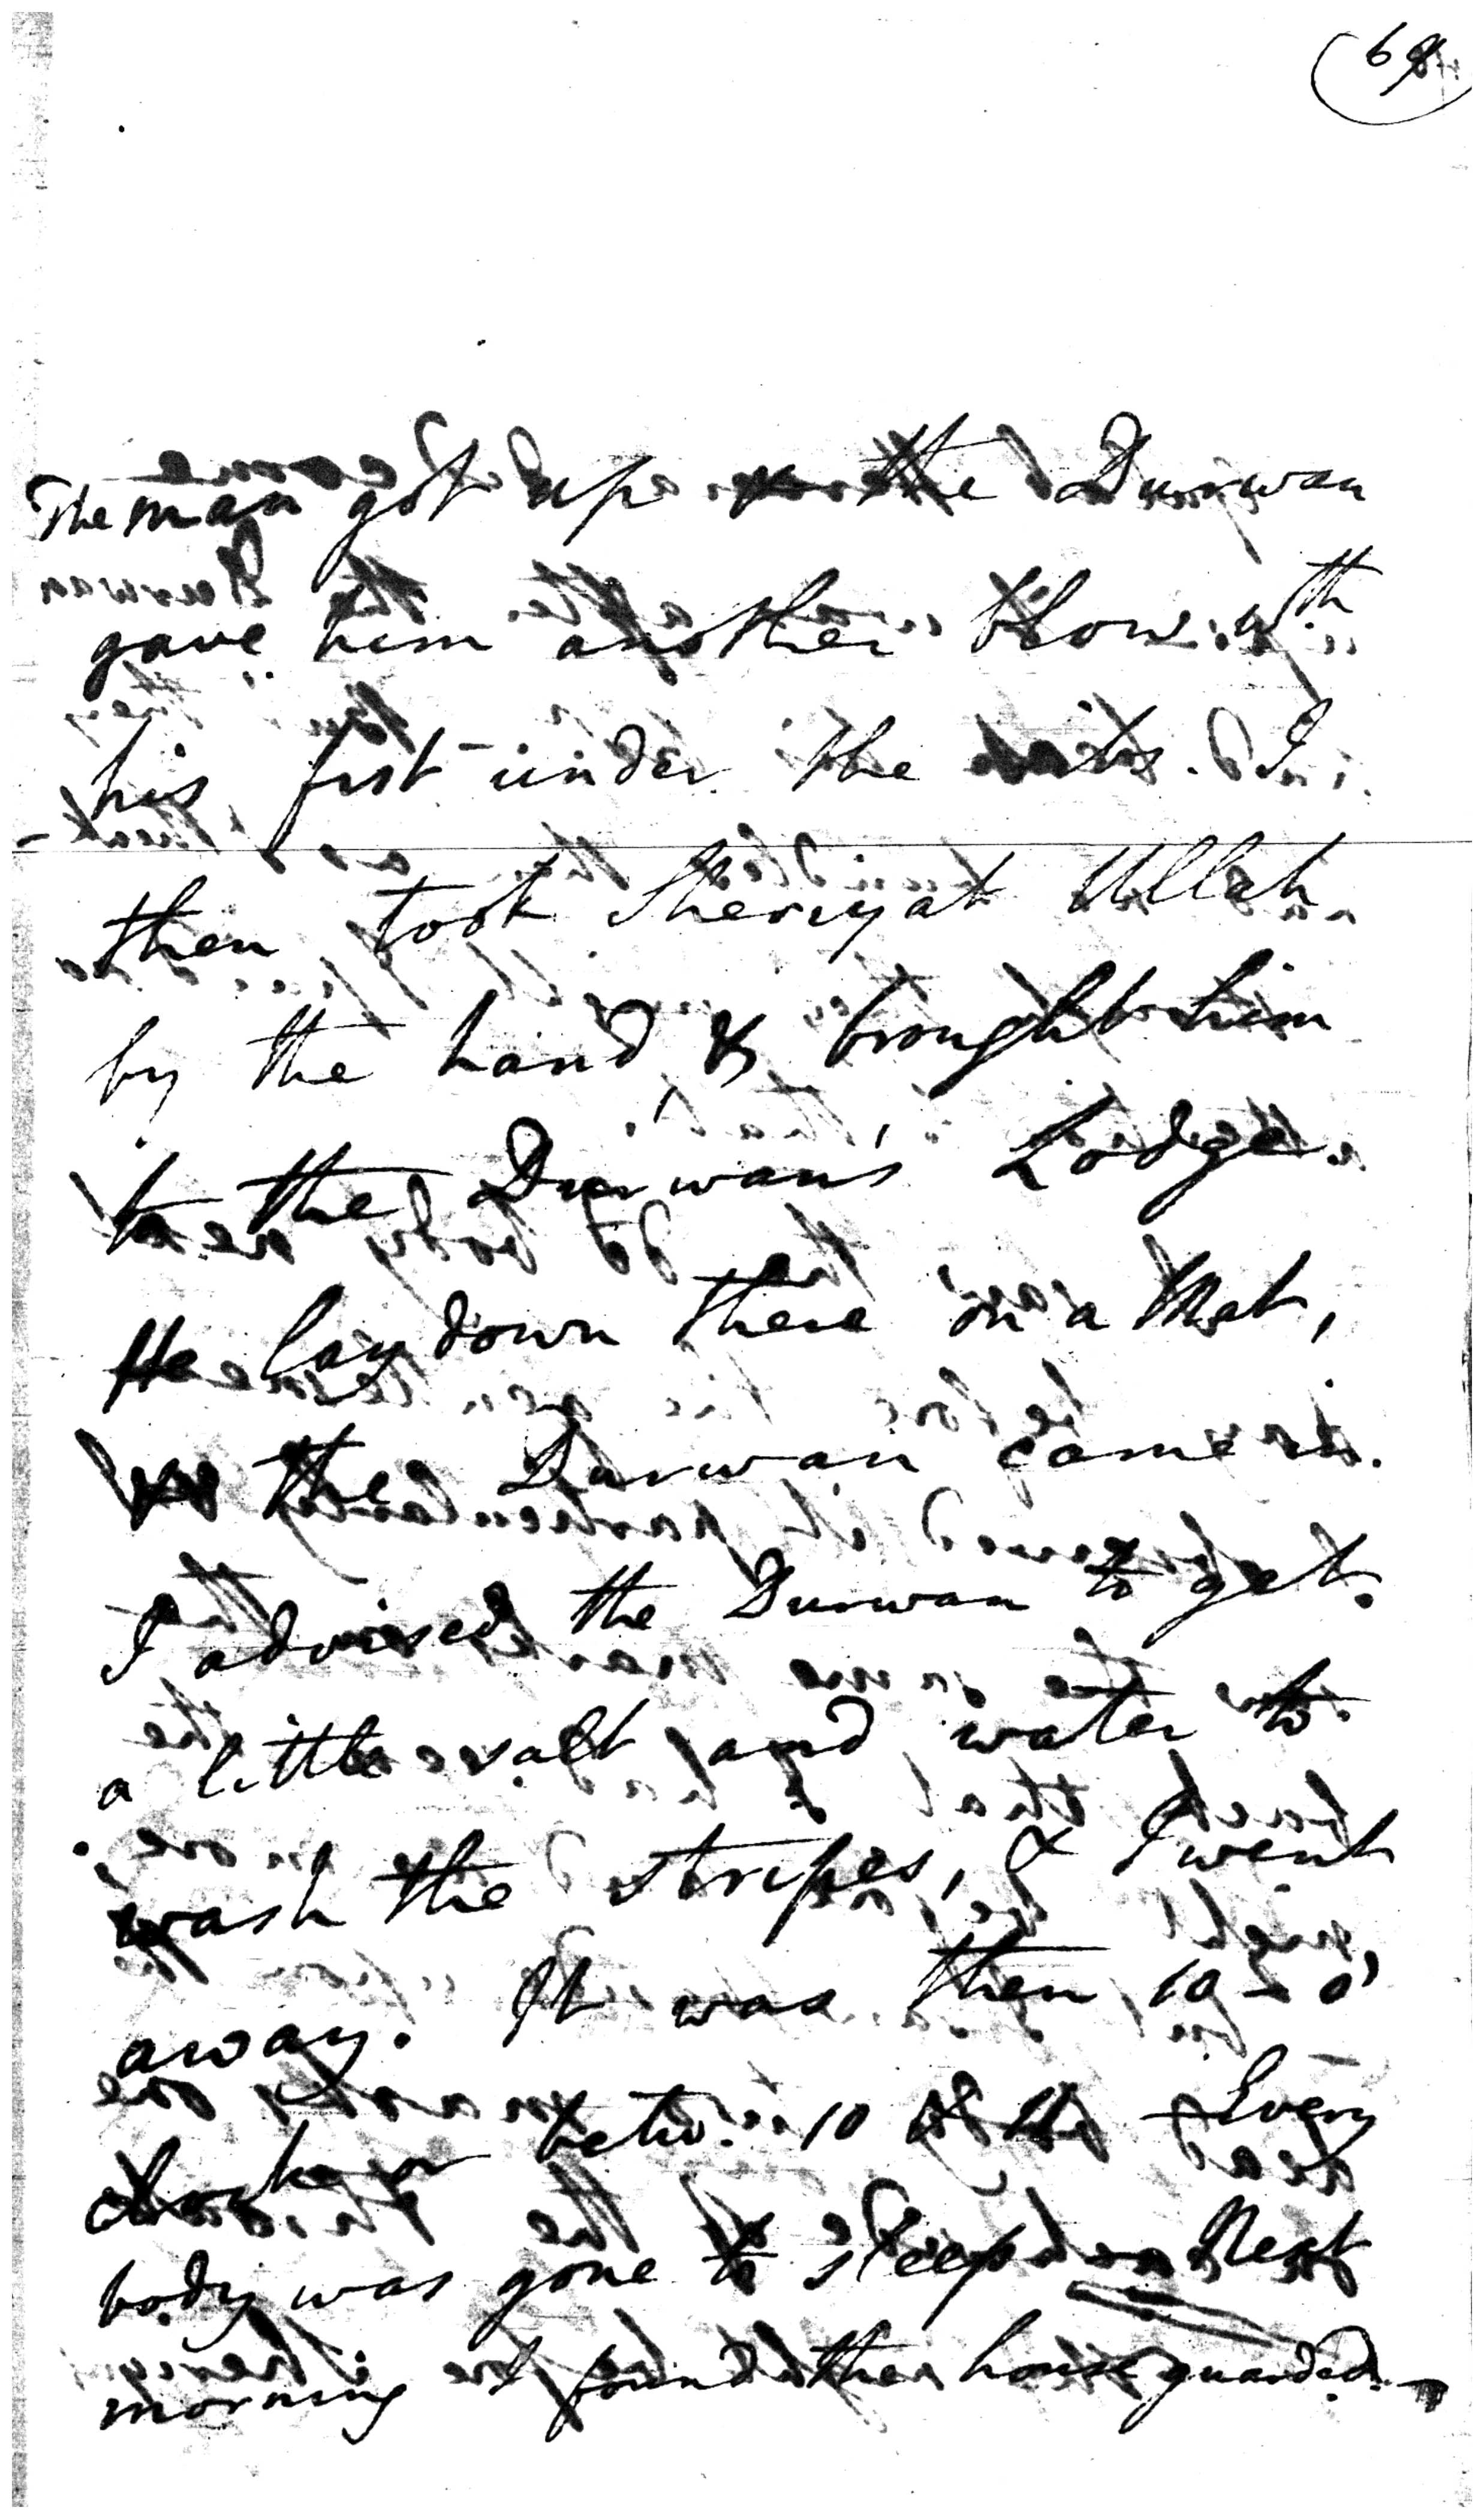 The man got up & the Durwan
gave him another blow wth
his fist under the . I
then took Sheriyat Ullah
by the hand & brought him
to the Durwan's Lodge.
He lay down there on a Mat,
& the Durwan came in.
I advised the Durwan to get
a little salt and water to
wash the stripes, & I went
away. It was then 10 o'
clock or betw. 10 & 11. Every
body was gone to sleep. Next
morning I found the house guarded